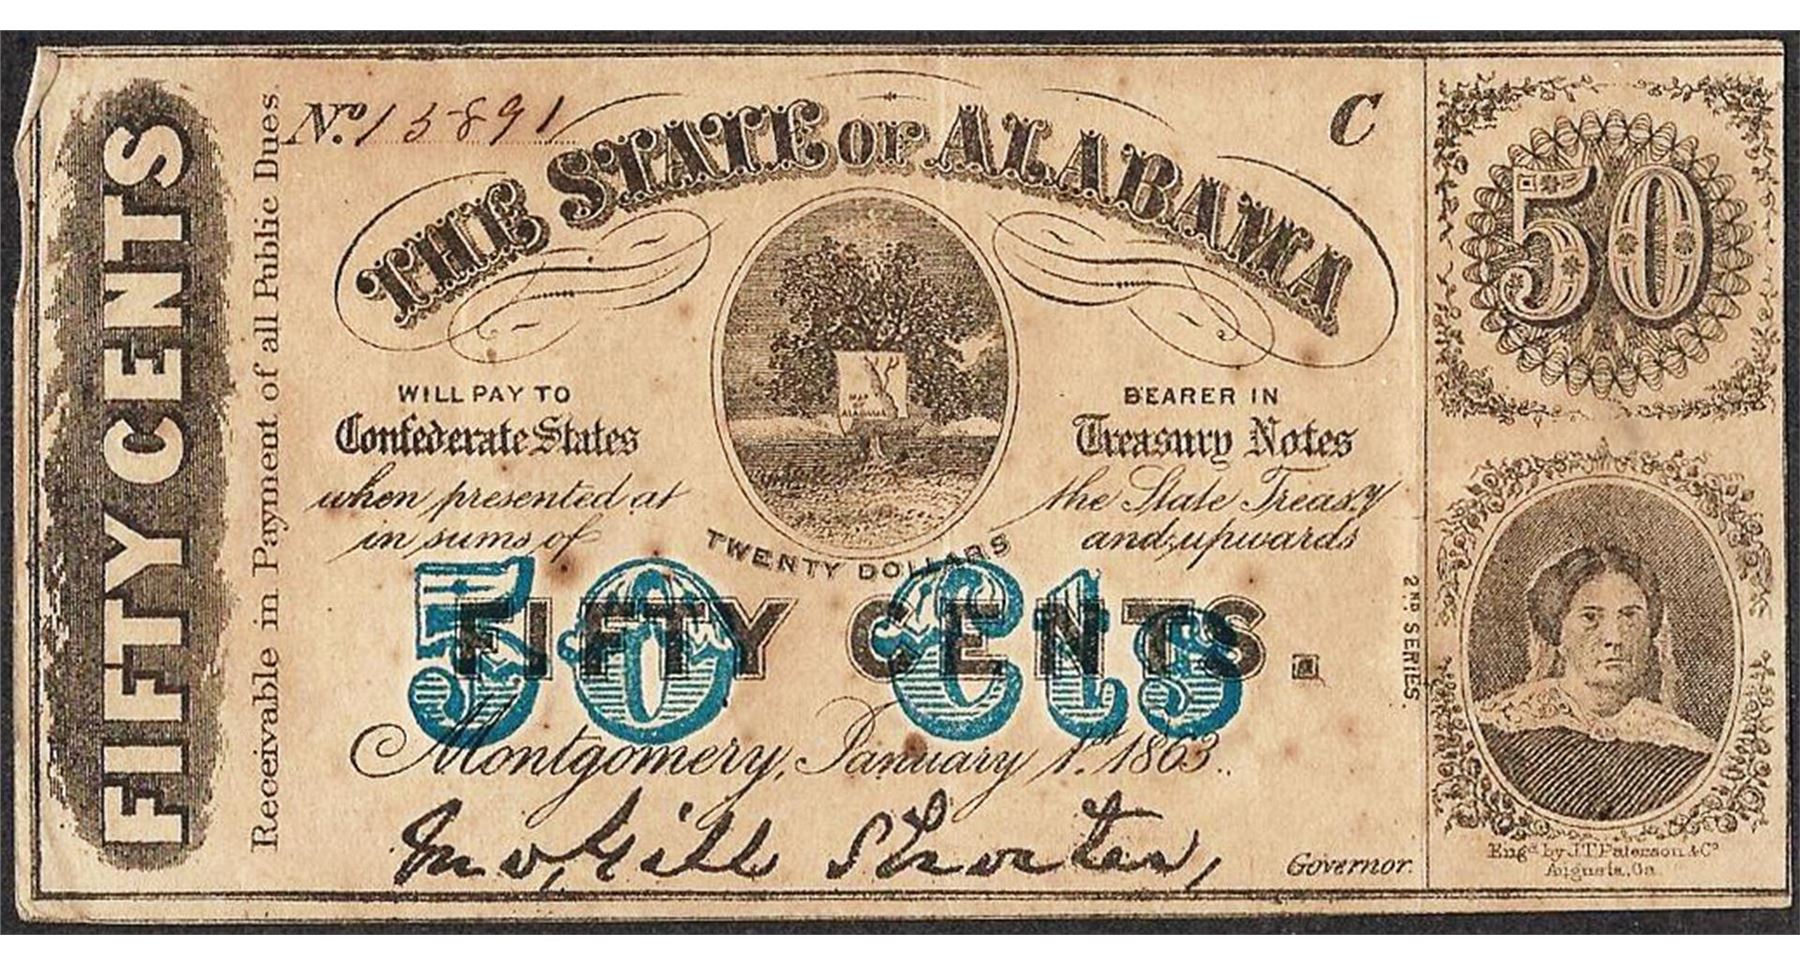 FIFTY CENTS
Receivable in Payment of all Public Dues.
No. 13891
C
THE STATE OF ALABAMA
50
MAP OF ALABAMA
WILL PAY TO BEARER IN
Confederate States Treasury Notes
when presented at the State Treas.y
in sums of TWENTY DOLLARS and upwards
50 Cts
FIFTY CENTS.
2ND SERIES.
Montgomery, January 1st 1863.
Jno, Gill Shorter,
Governor.
Engd. by J.T. Paterson & Co
Augusta, Ga.